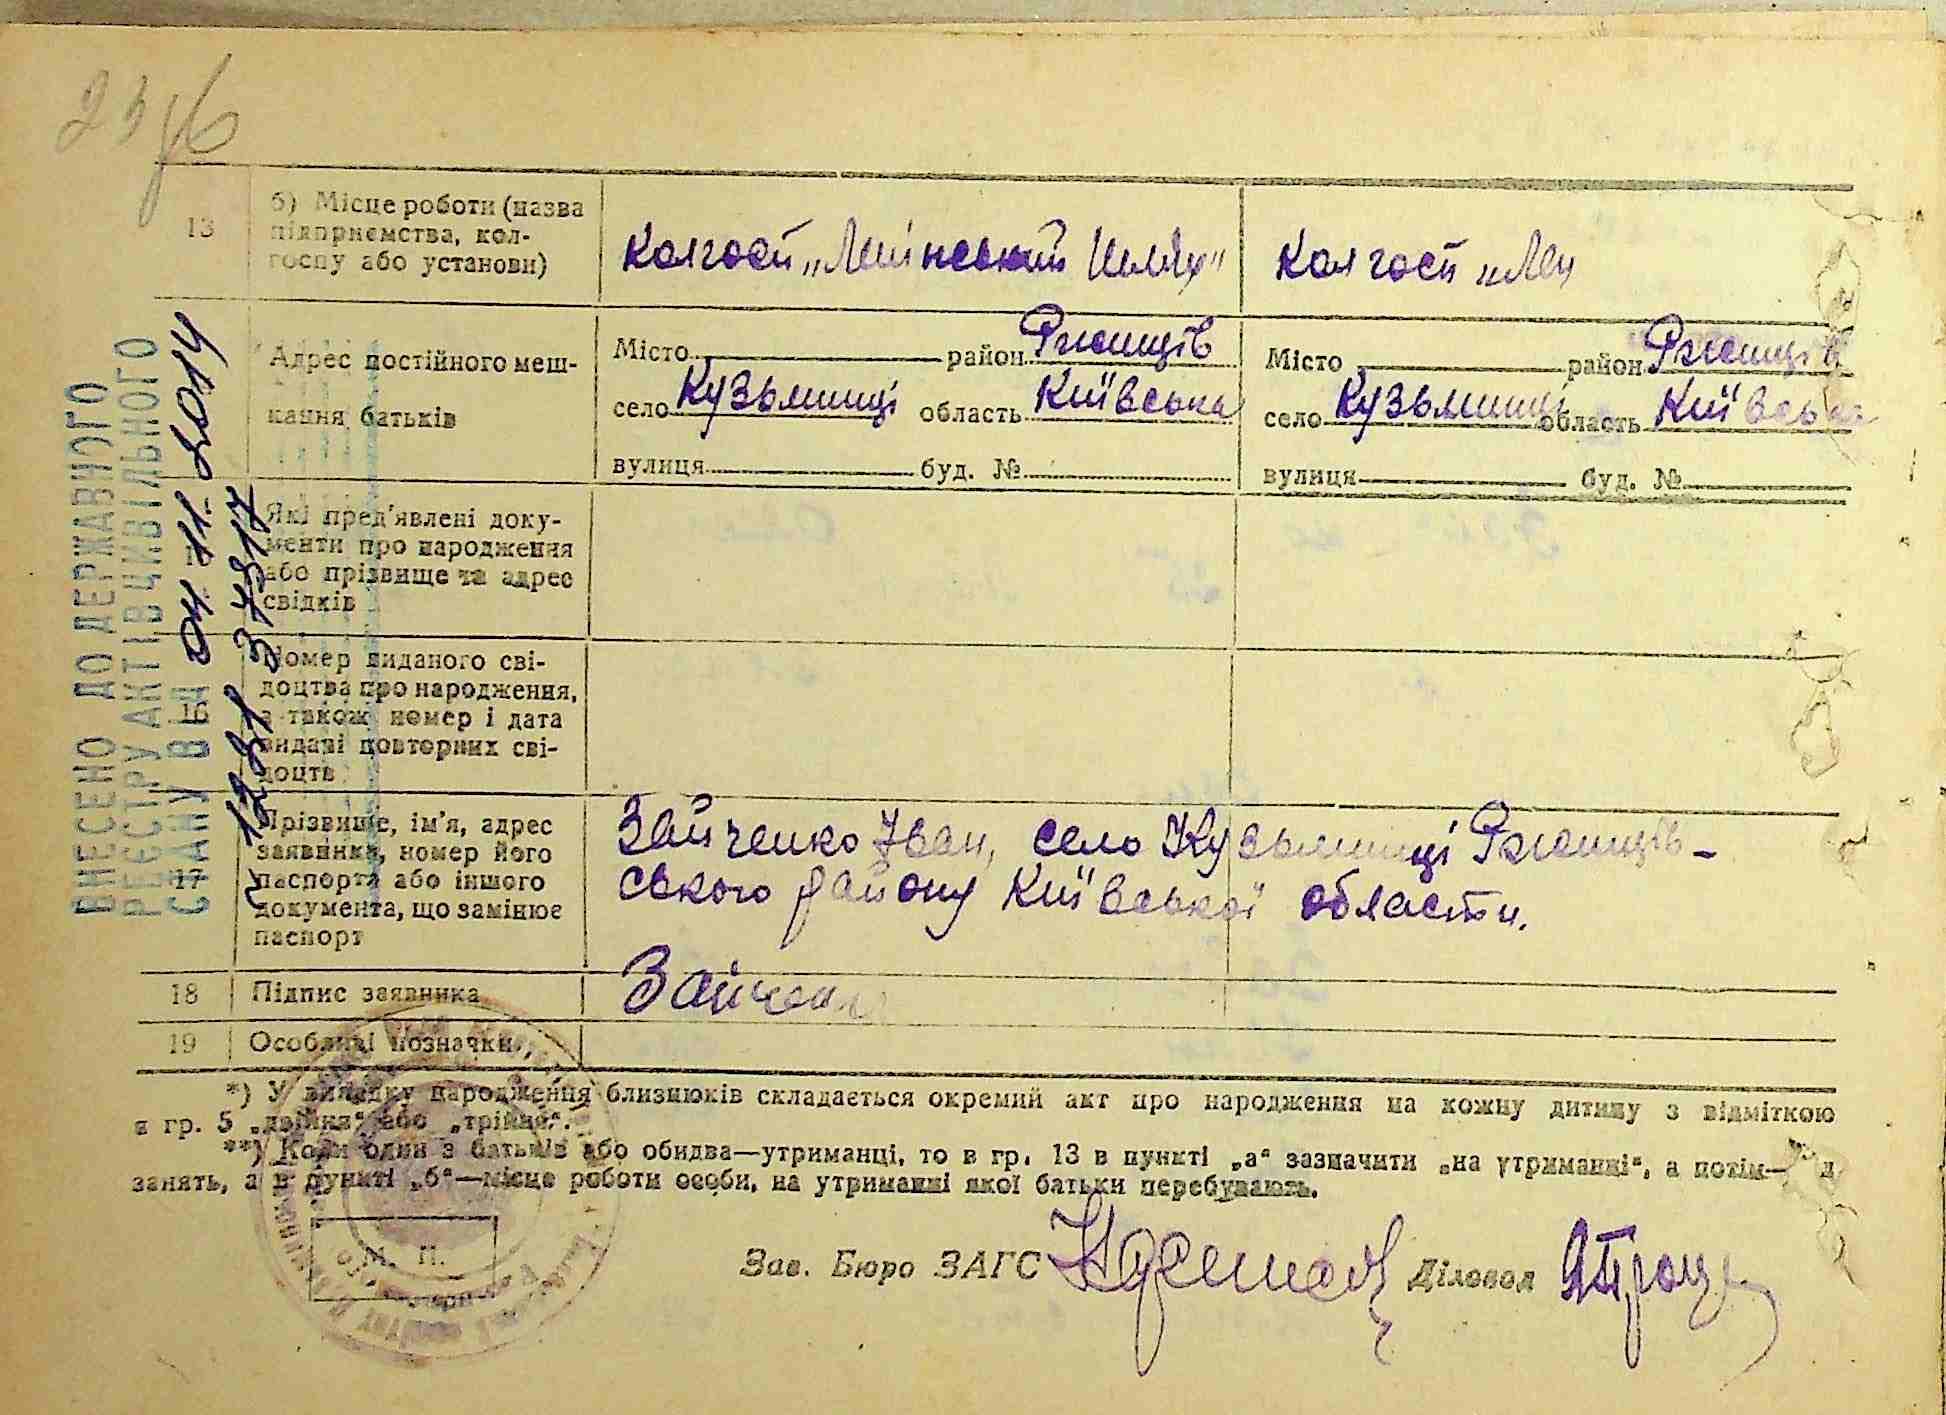 23
13
б) Місце роботи (назва
підприємства, кол-
госпу або установи)
Колгосп „Ленінський Шлях"
Колгосп „Лен
Адрес постійного меш-
кання батьків
Місто район Ржищів
село Кузьминці область Київська
вулиця буд. №
Місто район Ржищів
село Кузьминці область Київська
вулиця буд. №
Які пред'явлені доку-
менти про народження
або прізвище та адрес
свідків
16
Номер виданого сві-
доцтва про народження,
а також номер і дата
видачі повторних сві-
доцтв
17
Прізвище, ім'я, адрес
заявника, номер його
паспорта або іншого
документа, що замінює
паспорт
Зайченко Іван, село Кузьминці Ржищів-
ського району Київської области.
18
Підпис заявника
Зайченко
19
Особливі позначки
*) У випадку народження близнюків складається окремий акт про народження на кожну дитину з відміткою
в гр. 5 „двійня" або „трійня".
**) Коли один з батьків або обидва—утриманці, то в гр. 13 в пункті „а" зазначити „на утриманні", а потім—
занять, а в пункті „б"—місце роботи особи, на утриманні якої батьки перебувають.
М. П.
Зав. Бюро ЗАГС
Діловод
ВНЕСЕНО ДО ДЕРЖАВНОГО
РЕЄСТРУ АКТІВ ЦИВІЛЬНОГО
СТАНУ ВІД 04.11.2014